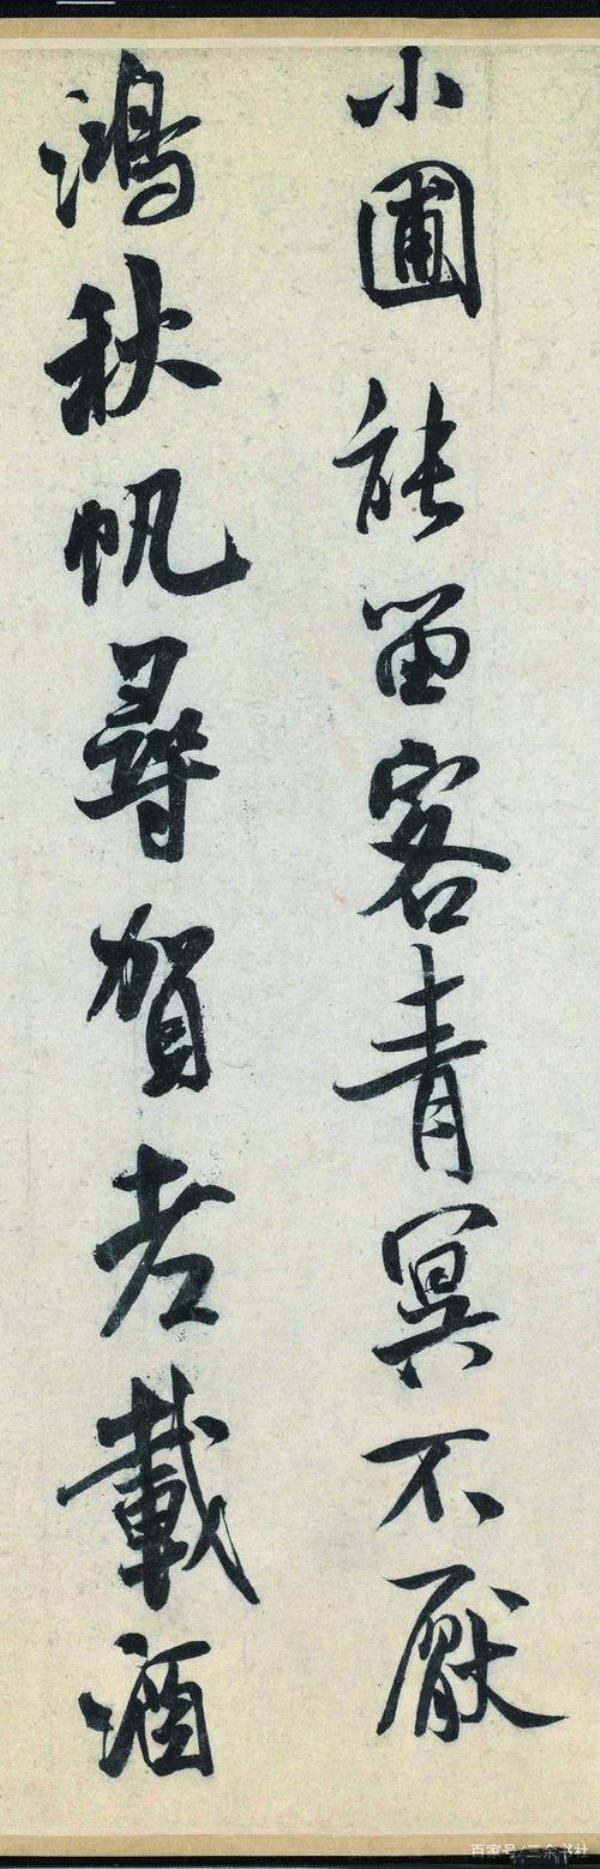 小圃能留客青冥不厭
鴻秋帆尋賀老載酒
百家号/三余书社